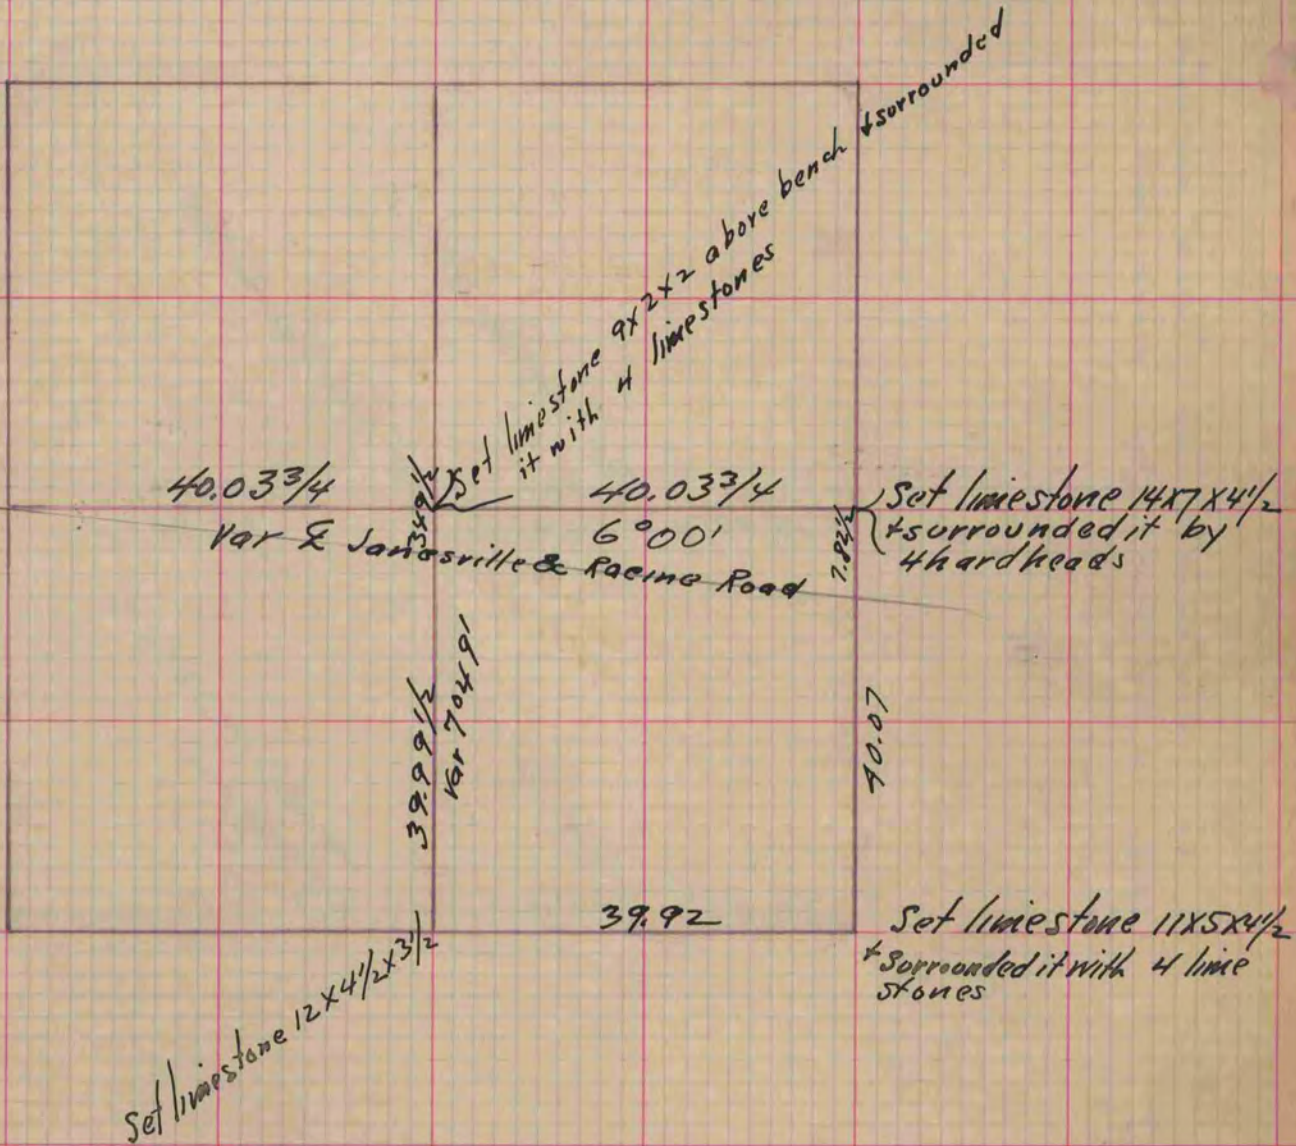 Set limestone 9x2x2 above bench & surrounded
it with 4 limestones
40.03 3/4
40.03 3/4
Var E
6°00'
Janesville & Racine Road
7.82 1/2
Set limestone 14x7x4 1/2
& surrounded it by
4 hardheads
39.99 1/2
Var 7°49'
40.07
39.92
Set limestone 11x5x4 1/2
& Surrounded it with 4 lime
stones
Set limestone 12x4 1/2x3 1/2